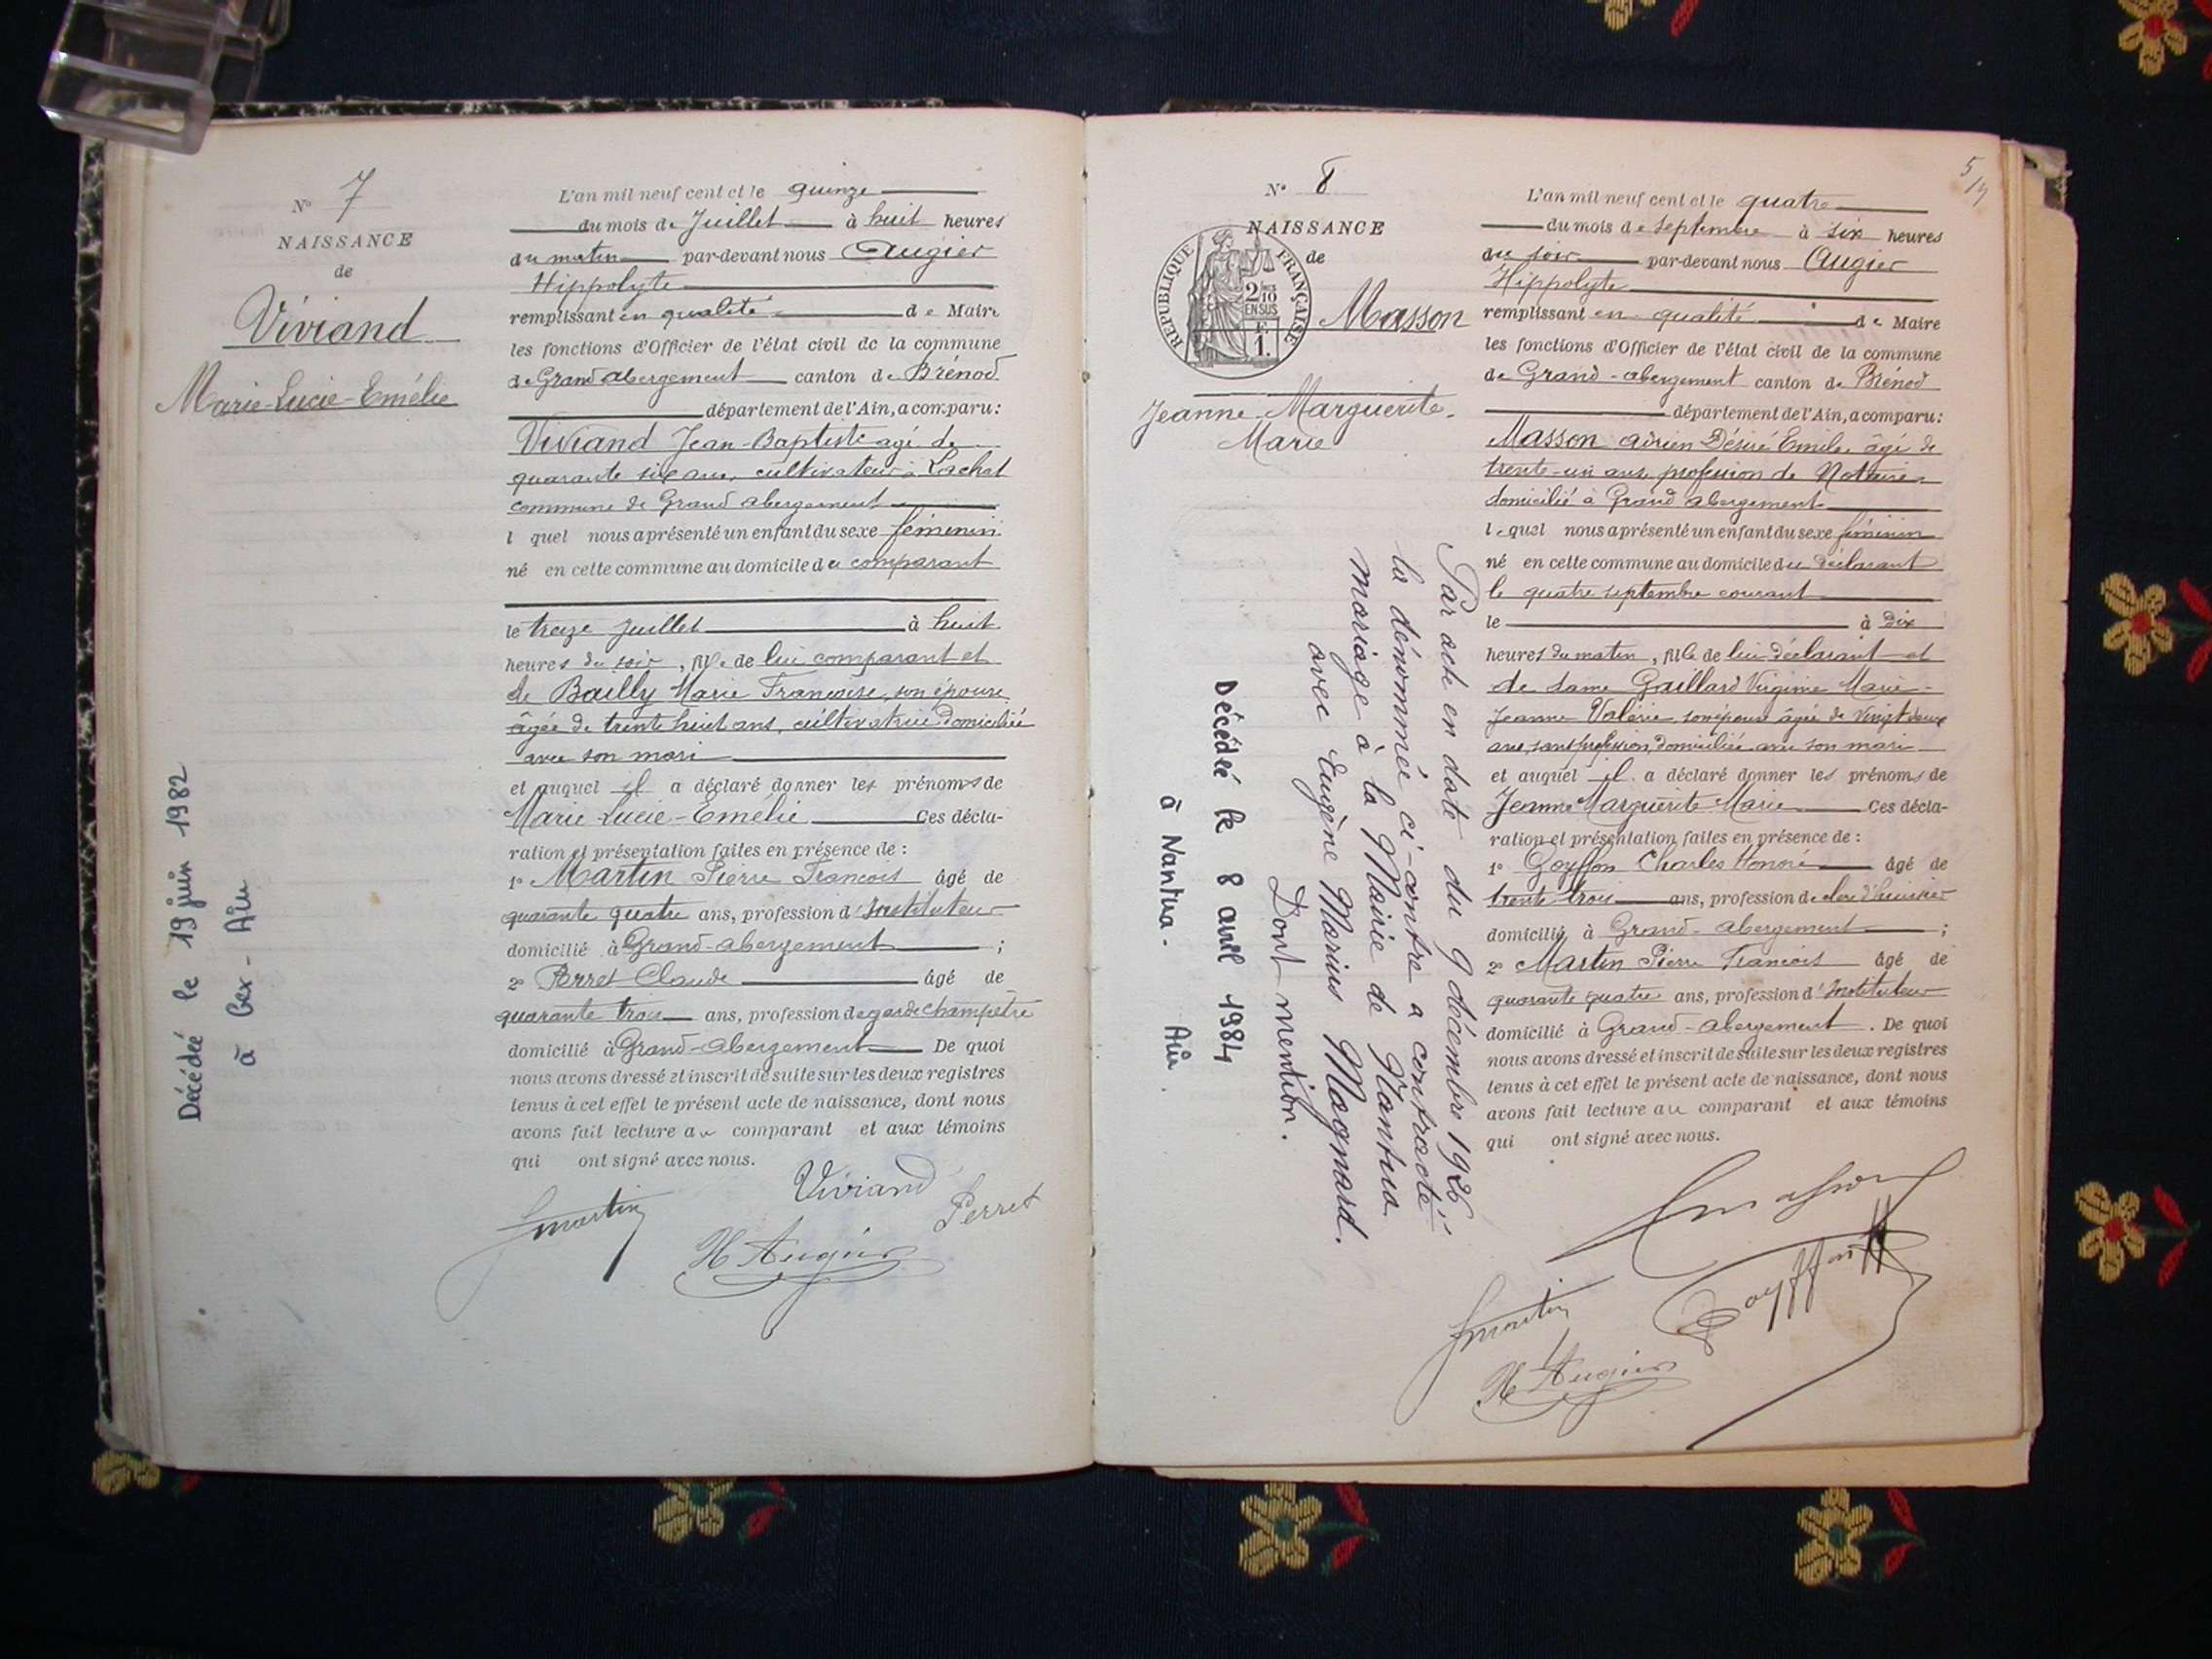 N° 7
NAISSANCE
de
Viviand
Marie-Lucie-Emélie
Décédée le 19 juin 1982
à Gex - Ain
L'an mil neuf cent et le quinze
du mois de Juillet à huit heures
du matin par-devant nous Augier
Hippolyte
remplissant en qualité de Maire
les fonctions d'Officier de l'état civil de la commune
de Grand abergement canton de Brénod
département de l'Ain, a comparu:
Viviand Jean-Baptiste agé de
quarante six ans, cultivateur à Lachat
commune de Grand abergement
l quel nous a présenté un enfant du sexe féminin
né en cette commune au domicile du comparant
le treize juillet à huit
heures du soir, fille de lui comparant et
de Bailly Marie Francoise, son épouse
âgée de trente huit ans, cultivatrice domiciliée
avec son mari
et auquel il a déclaré donner les prénoms de
Marie Lucie-Emélie Ces décla-
ration et présentation faites en présence de :
1° Martin Pierre Francois âgé de
quarante quatre ans, profession d'Instituteur
domicilié à Grand-abergement ;
2° Perret Claude âgé de
quarante trois ans, profession de garde champêtre
domicilié à Grand-abergement De quoi
nous avons dressé et inscrit de suite sur les deux registres
tenus à cet effet le présent acte de naissance, dont nous
avons fait lecture au comparant et aux témoins
qui ont signé avec nous.
Viviand
Jmartin
Perret
H Augier
5
N° 8
NAISSANCE
de
REPUBLIQUE FRANÇAISE
2/10
EN SUS
1 F.
Masson
Jeanne-Marguerite-
Marie
Par acte en date du 9 décembre 1926
la dénommée ci-contre a contracté
mariage à la Mairie de Nantua
avec Eugène Marius Magnard.
Dont mention.
Décédée le 8 avril 1984
à Nantua - Ain.
L'an mil neuf cent et le quatre
du mois de septembre à six heures
du soir par-devant nous Augier
Hippolyte
remplissant en qualité de Maire
les fonctions d'Officier de l'état civil de la commune
de Grand-abergement canton de Brénod
département de l'Ain, a comparu:
Masson adrien Désiré Emile, âgé de
trente-un ans, profession de Notaire,
domicilié à Grand abergement
lequel nous a présenté un enfant du sexe féminin
né en cette commune au domicile du déclarant
le quatre septembre courant
le à dix
heures du matin, fille de lui déclarant et
de dame Gaillard Virginie Marie-
Jeanne Valérie son épouse âgée de vingt deux
ans, sans profession, domiciliée avec son mari
et auquel il a déclaré donner les prénoms de
Jeanne Marguerite Marie Ces décla-
ration et présentation faites en présence de :
1° Goyffon Charles Honoré âgé de
trente trois ans, profession de clerc d'huissier
domicilié à Grand-abergement ;
2° Martin Pierre Francois âgé de
quarante quatre ans, profession d'Instituteur
domicilié à Grand-abergement. De quoi
nous avons dressé et inscrit de suite sur les deux registres
tenus à cet effet le présent acte de naissance, dont nous
avons fait lecture au comparant et aux témoins
qui ont signé avec nous.
Masson
Goyffon
Jmartin
H Augier